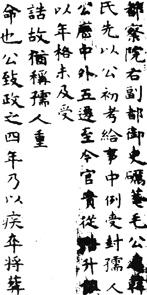 都察院右副都御史礪菴毛公
氏先以公初考給事中例受封孺人
公歷中外五遷至今官貴從升
以年格未及受
誥故猶稱孺人重
命也公致政之四年乃以疾卒將葬